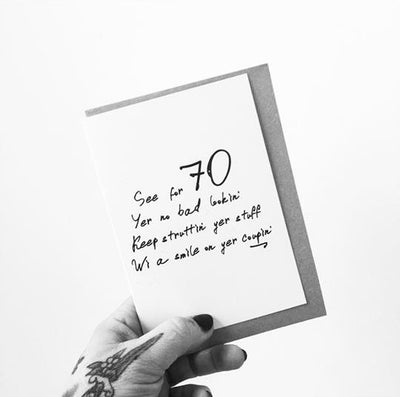 See for 70
Yer no bad lookin'
Keep struttin' yer stuff
Wi a smile on yer coupin'